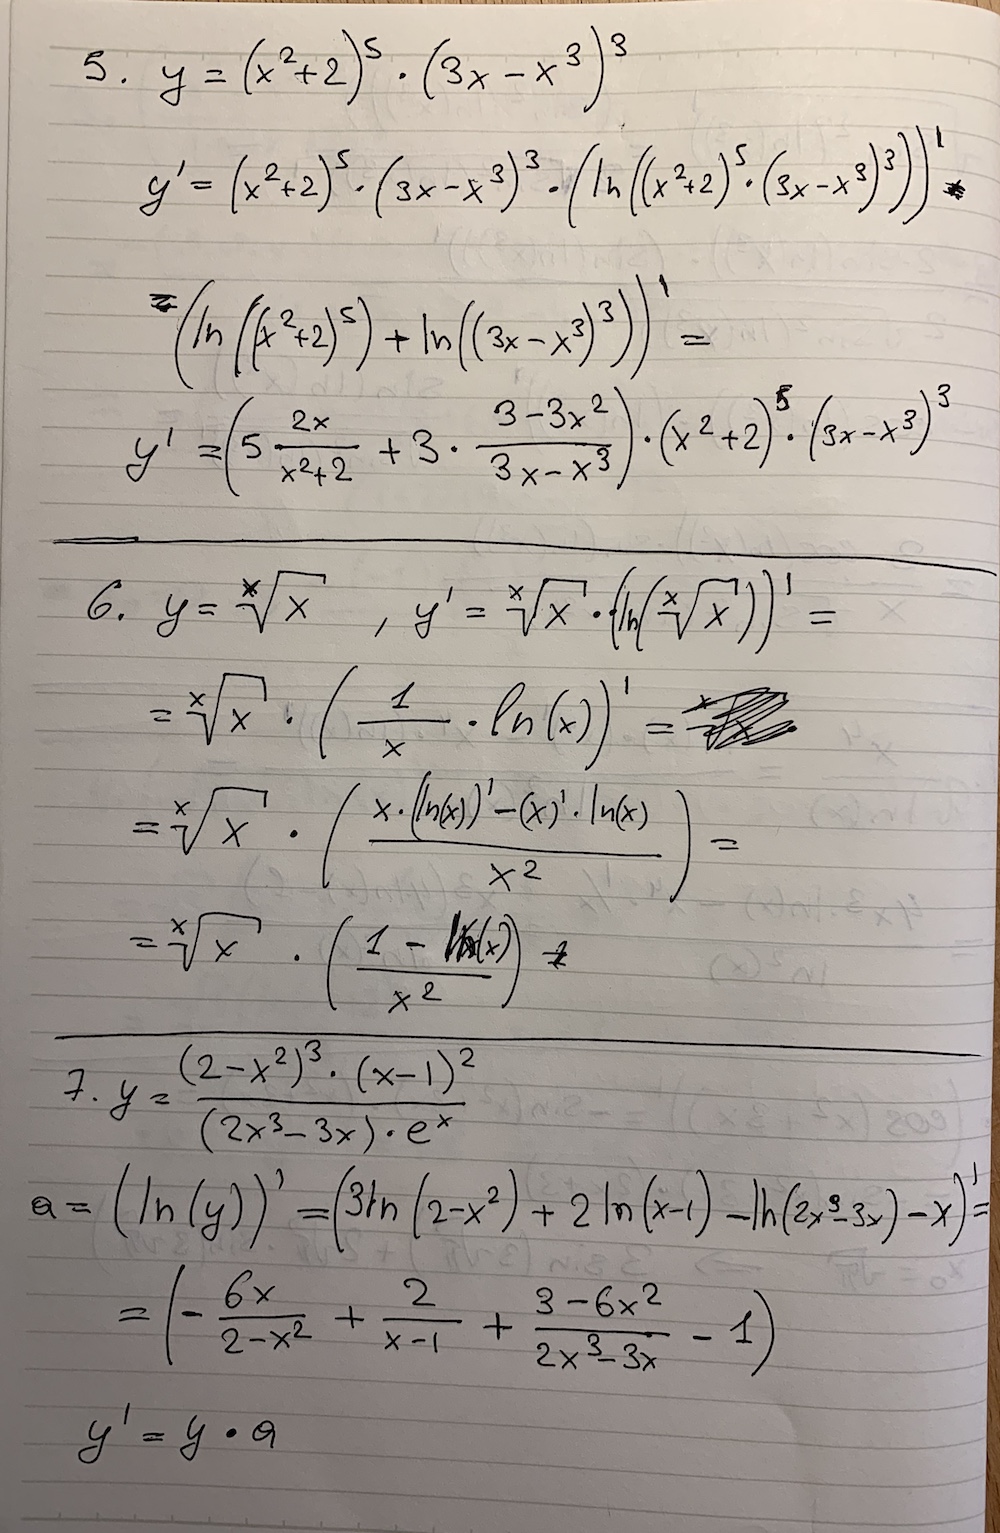 5. y = (x²+2)⁵ · (3x − x³)³
y' = (x²+2)⁵ · (3x − x³)³ · (ln((x²+2)⁵ · (3x − x³)³))'
(ln((x²+2)⁵) + ln((3x − x³)³))' =
y' = (5 2x/(x²+2) + 3 · (3 − 3x²)/(3x − x³)) · (x²+2)⁵ · (3x − x³)³
6. y = ˣ√x , y' = ˣ√x · (ln(ˣ√x))' =
= ˣ√x · (1/x · ln(x))' =
= ˣ√x · ((x · (ln(x))' − (x)' · ln(x))/x²) =
= ˣ√x · ((1 − ln(x))/x²)
7. y = ((2 − x²)³ · (x − 1)²)/((2x³ − 3x) · eˣ)
a = (ln(y))' = (3ln(2 − x²) + 2ln(x − 1) − ln(2x³ − 3x) − x)' =
= (− 6x/(2 − x²) + 2/(x − 1) + (3 − 6x²)/(2x³ − 3x) − 1)
y' = y · a